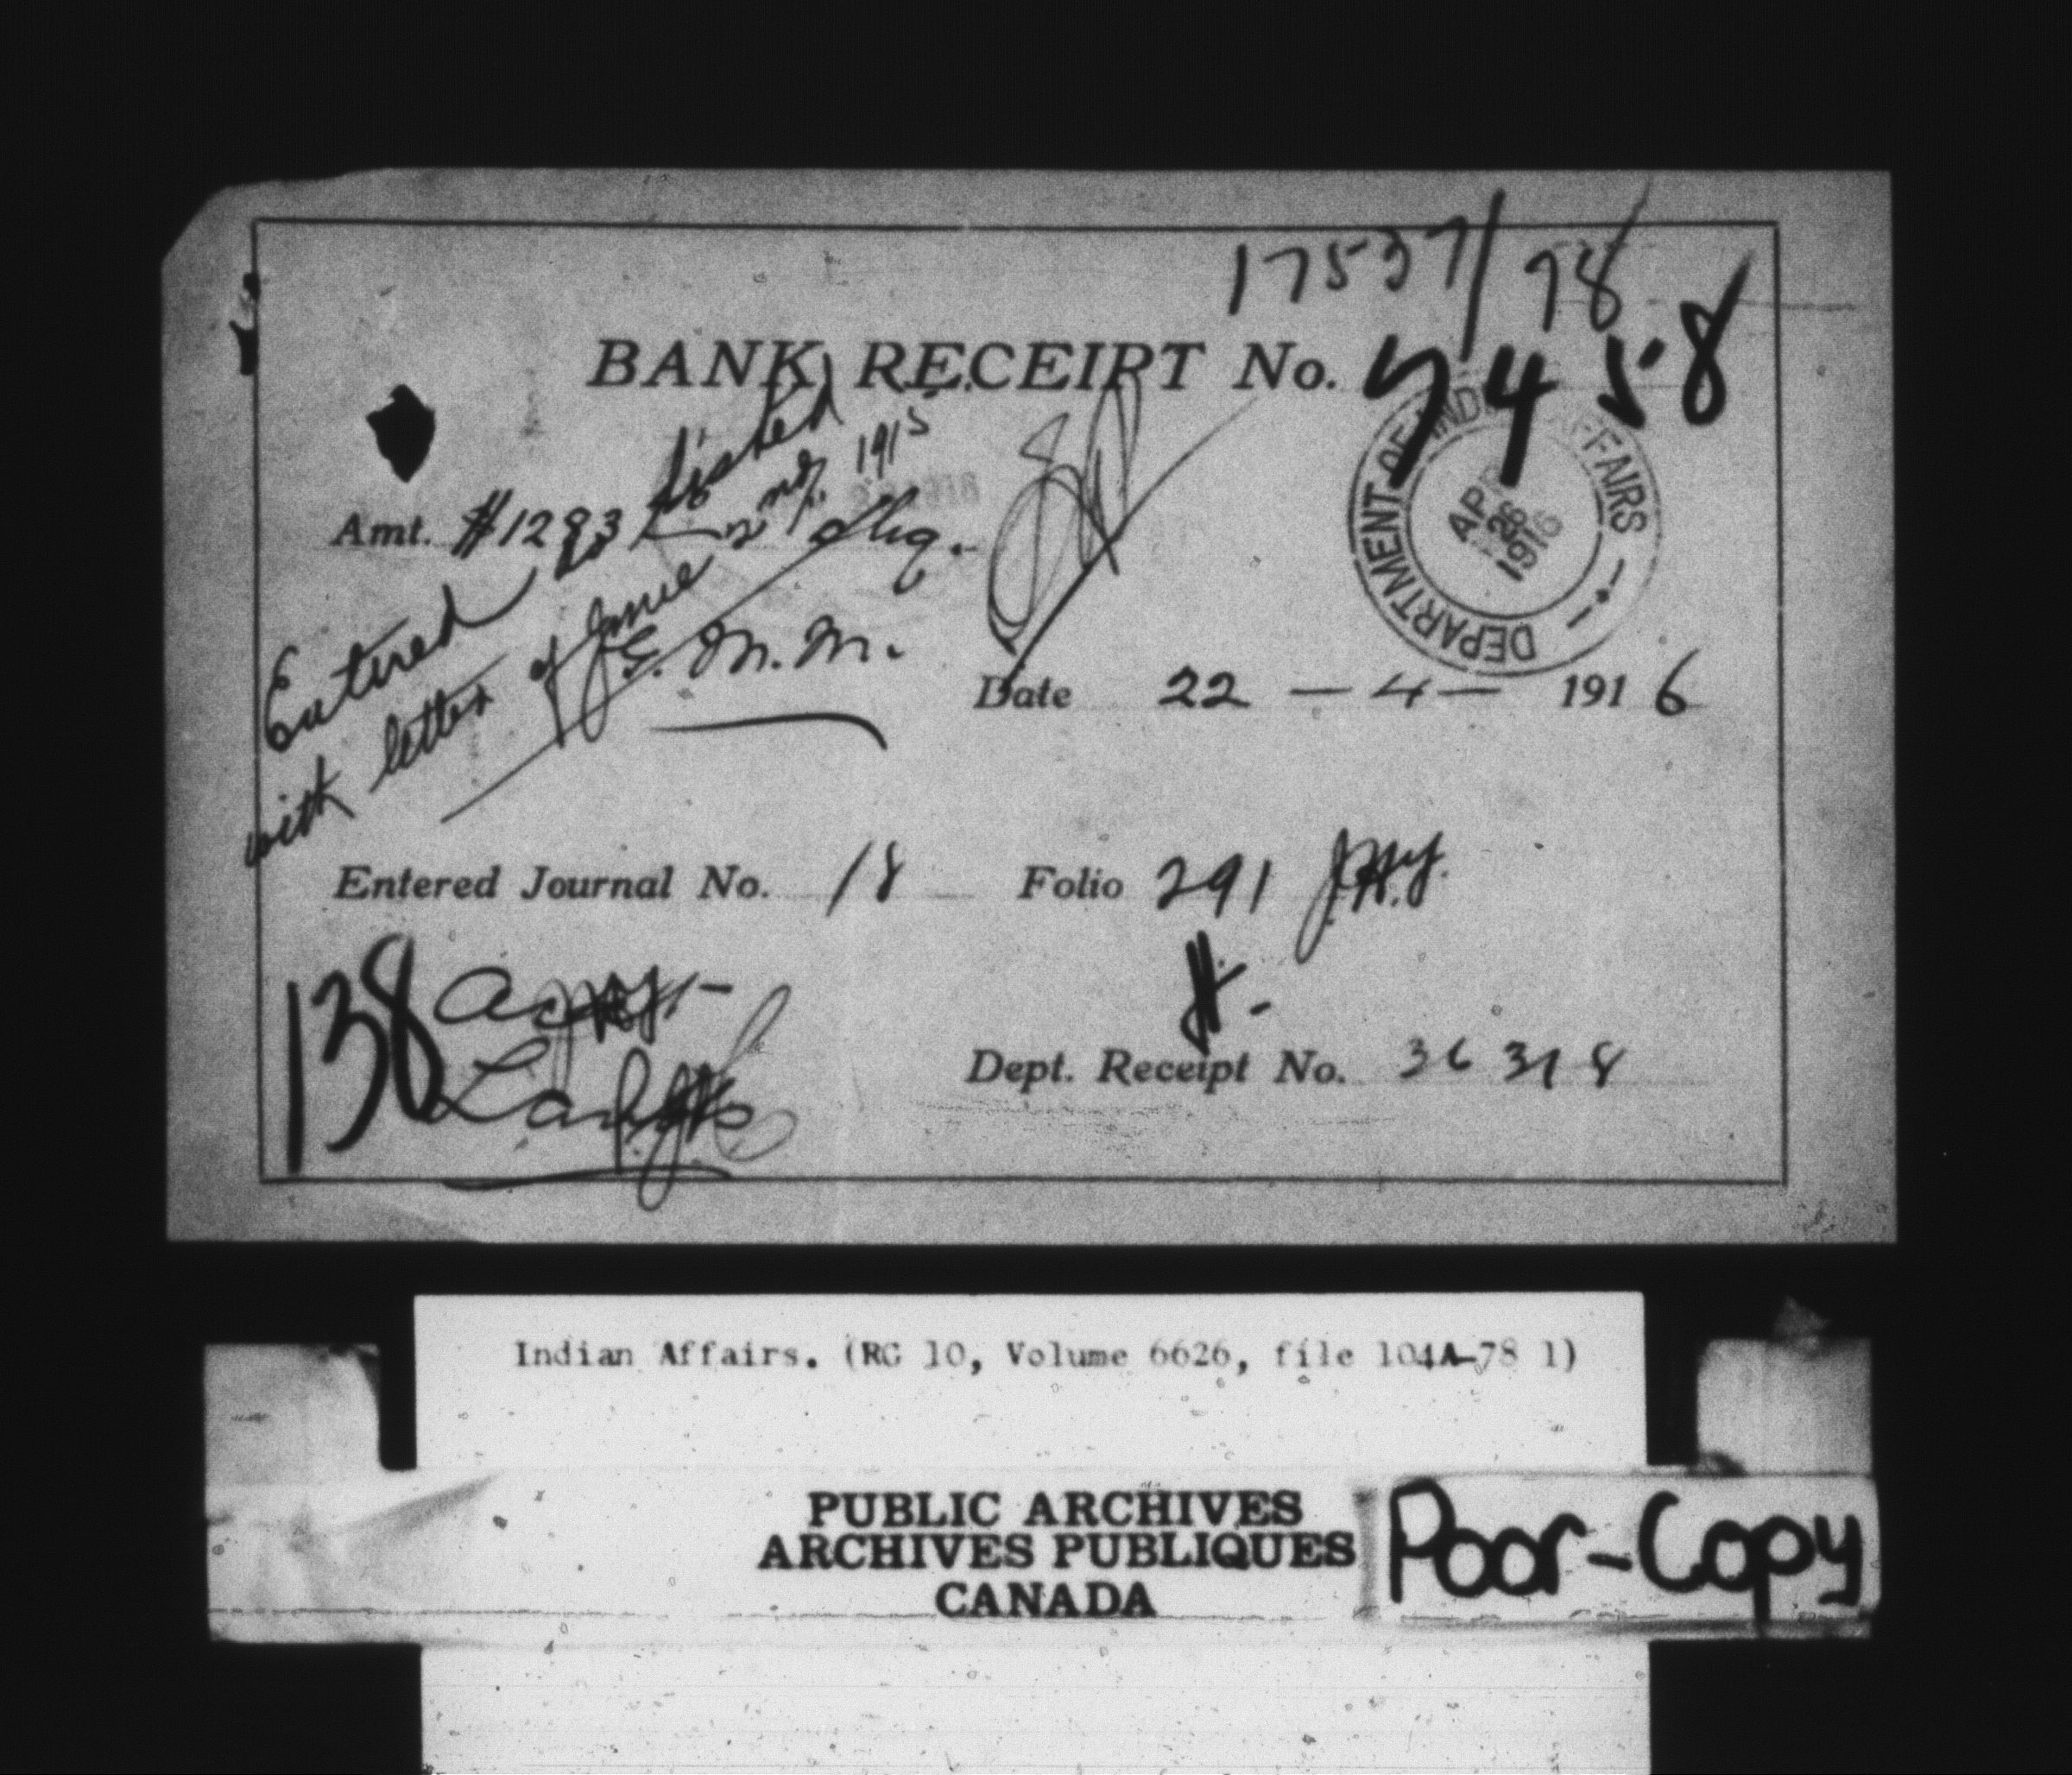 17537/78
BANK RECEIPT No. 7458
DEPARTMENT OF INDIAN AFFAIRS
APR 26 1916
Amt. #1293
Entered & listed
with letter of June 2nd/ 1915
G. M. M.
Date 22 - 4 - 1916
Entered Journal No. 18 Folio 291 J.H.Y.
138
H.-
Dept. Receipt No. 36318
Indian Affairs. (RG 10, Volume 6626, file 104A-78 1)
PUBLIC ARCHIVES
ARCHIVES PUBLIQUES
CANADA
Poor-Copy